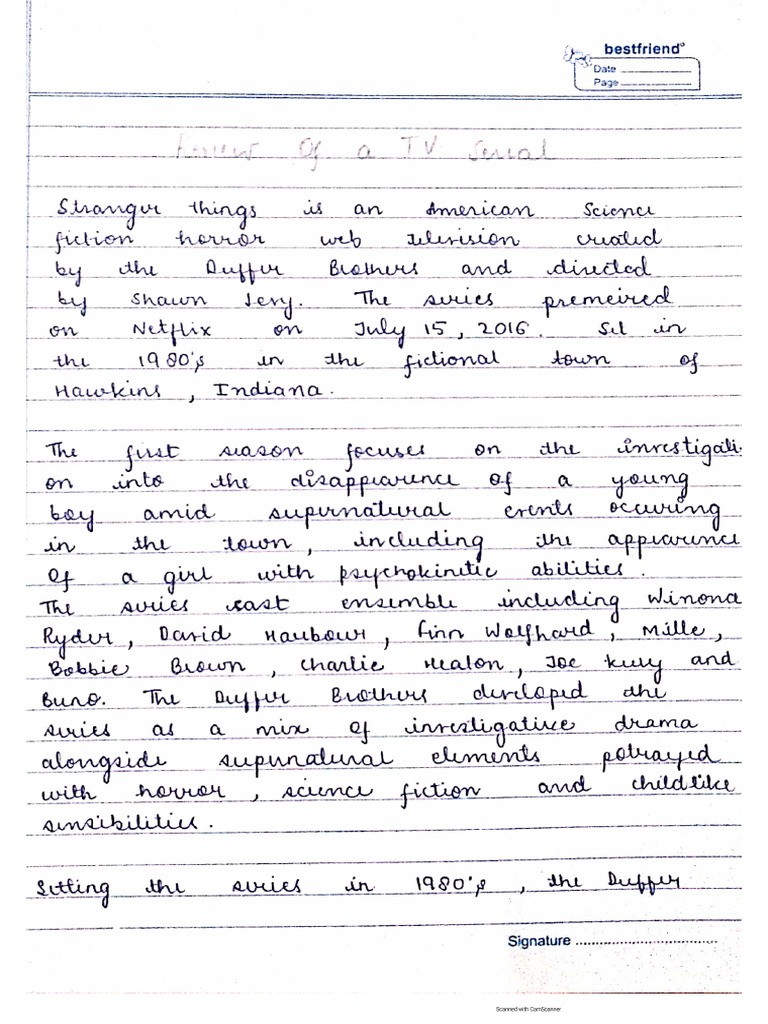 bestfriend
Date
Page
Review Of a TV Serial
Stranger things is an American Science
fiction horror web television created
by the Duffer Brothers and directed
by Shawn Levy. The series premeired
on Netflix on July 15, 2016. Set in
the 1980's in the fictional town of
Hawkins, Indiana.
The first season focuses on the investigati-
on into the disappearence of a young
boy amid supernatural events occuring
in the town, including the appearence
Of a girl with psychokinetic abilities.
The series cast ensemble including Winona
Ryder, David Harbour, Finn Wolfhard, Mille,
Bobbie Brown, Charlie Heaton, Joe Keery and
Buno. The Duffer Brothers developed the
series as a mix of investigative drama
alongside supernatural elements potrayed
with horror, science fiction and childlike
sensibilities.
Setting the series in 1980's, the Duffer
Signature
Scanned with CamScanner